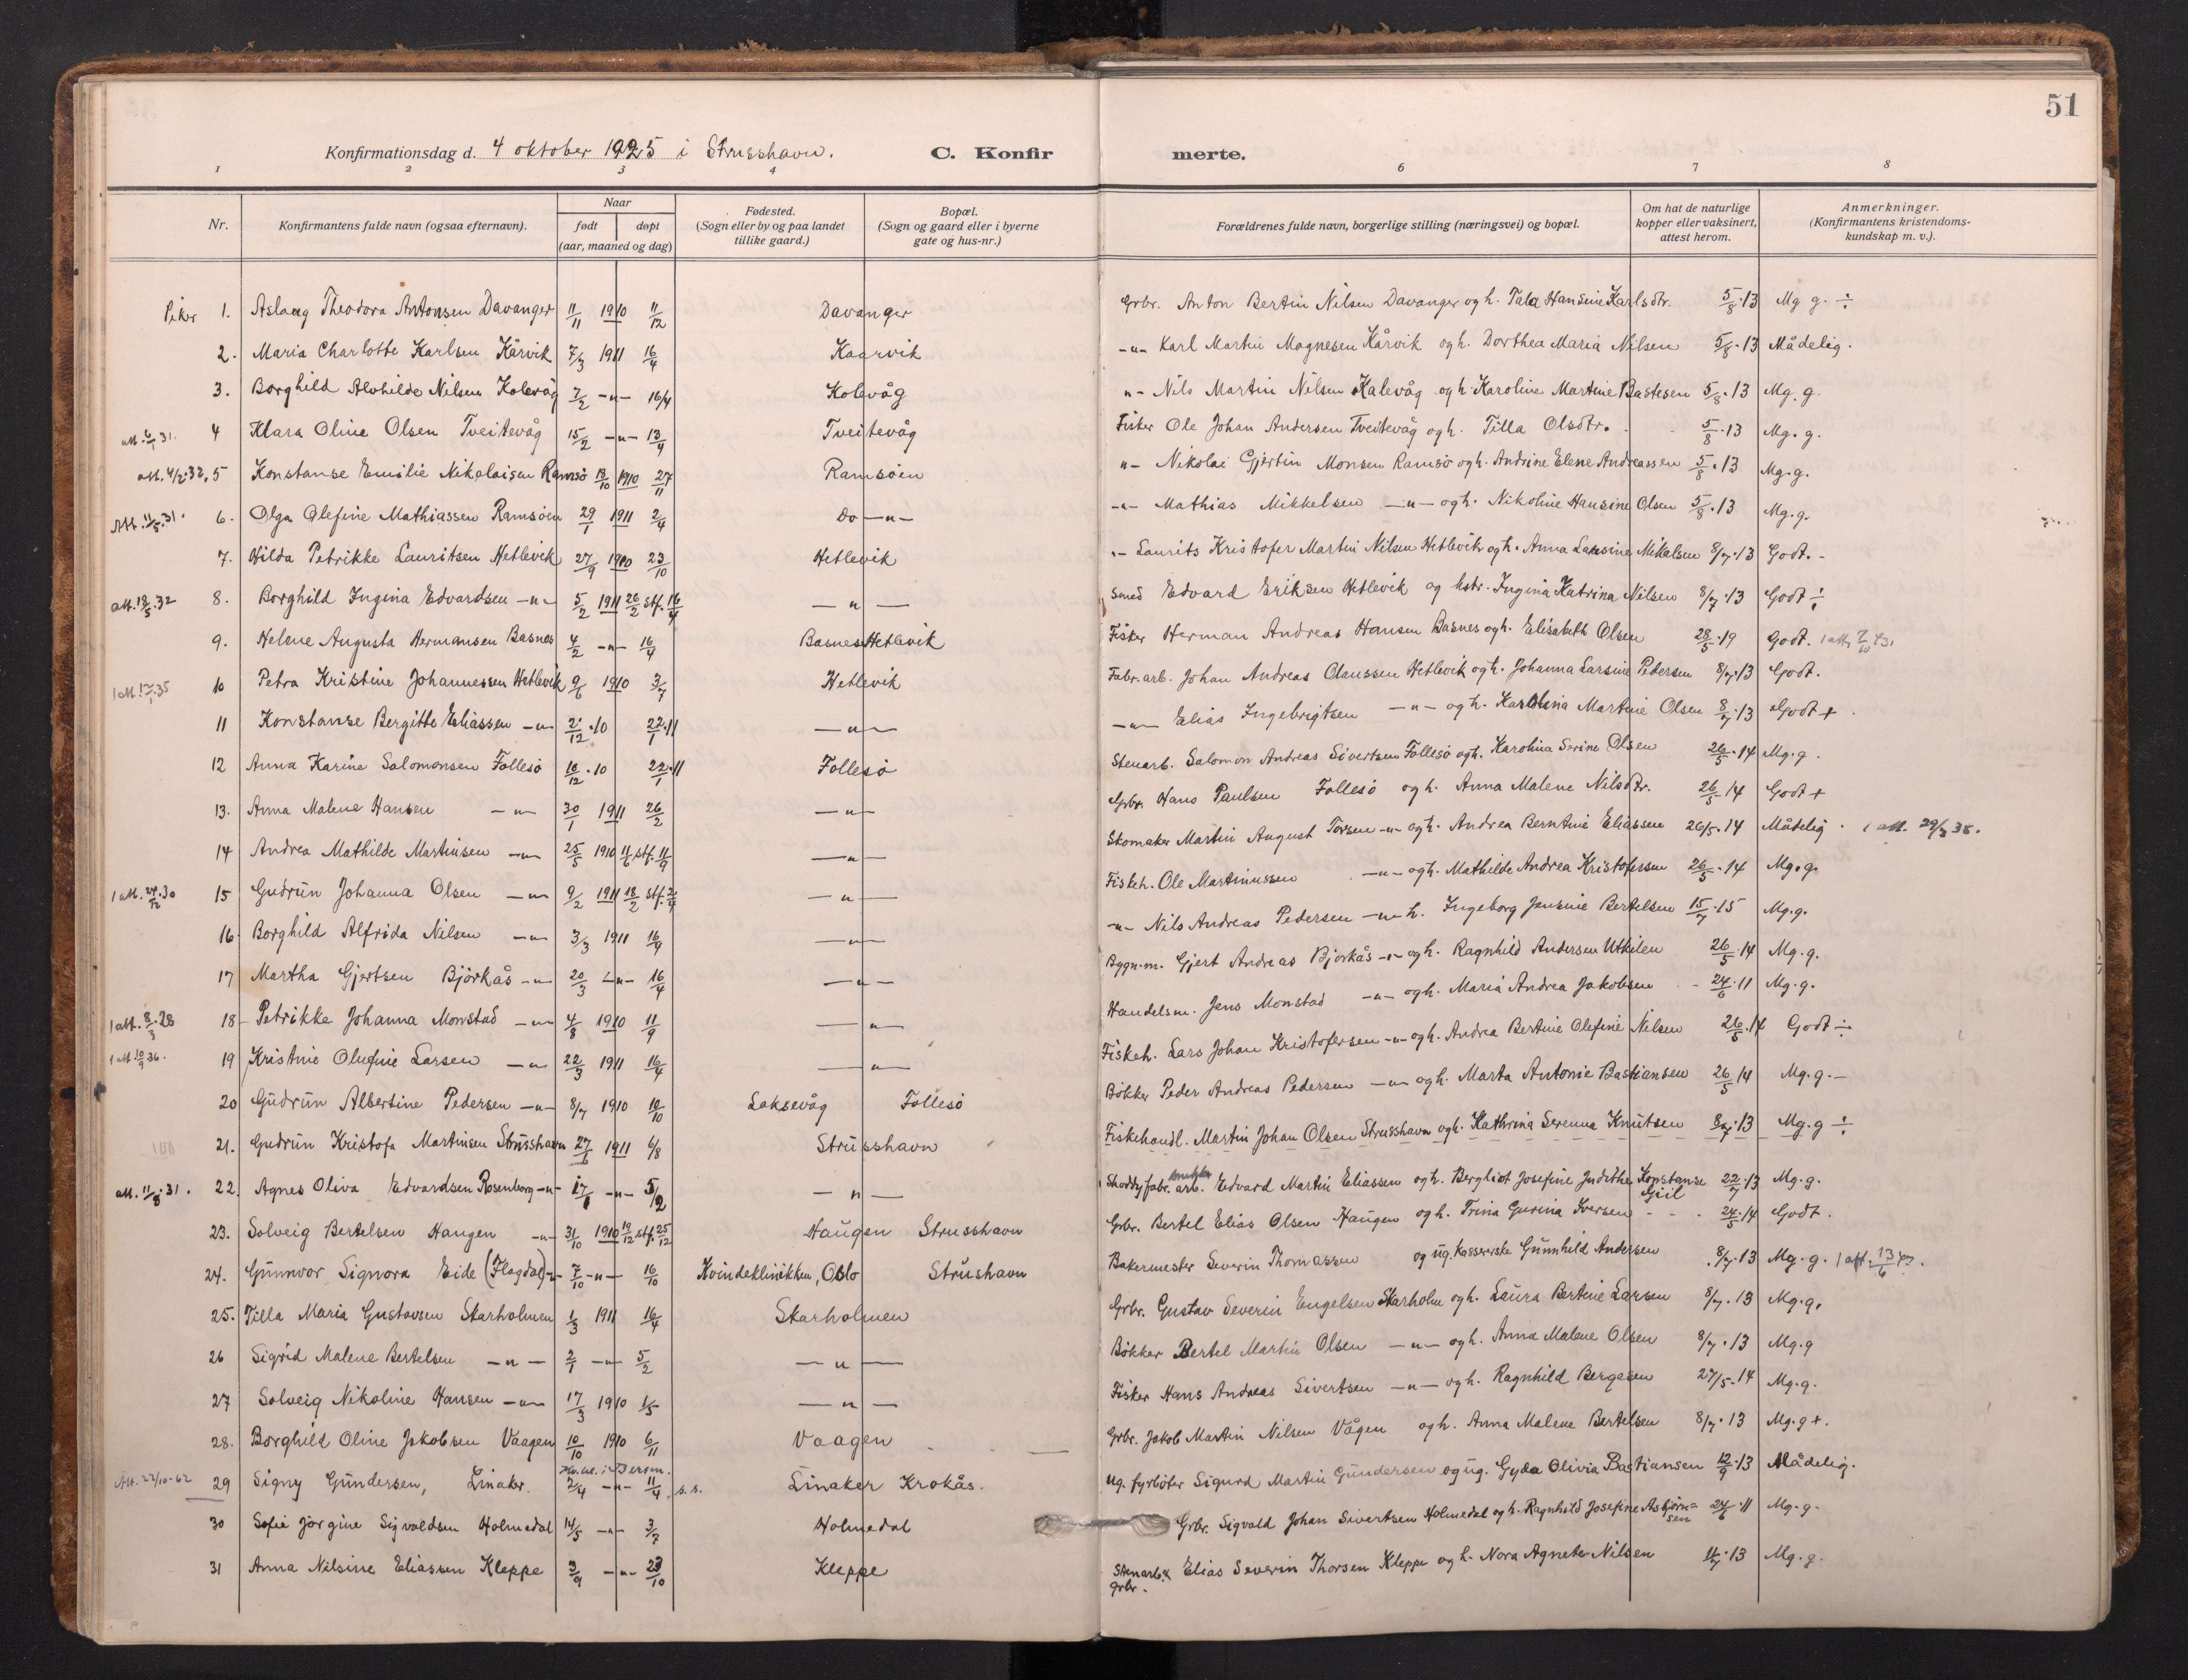 51
Konfirmationsdag d. 4 oktober 1925 i Strusshavn. C. Konfirmerte.
1 2 3 4 6 7 8
Nr. Konfirmantens fulde navn (ogsaa efternavn). Naar født døpt (aar, maaned og dag) Fødested. (Sogn eller by og paa landet tillike gaard.) Bopæl. (Sogn og gaard eller i byerne gate og hus-nr.) Forældrenes fulde navn, borgerlige stilling (næringsvei) og bopæl. Om hat de naturlige kopper eller vaksinert, attest herom. Anmerkninger. (Konfirmantens kristendomskundskap m. v.).
Piker 1. Aslaug Theodora Antonsen Davanger 11/11 1910 11/12 Davanger Grbr. Anton Bertin Nilsen Davanger og h. Tala Hansine Karlsdtr. 5/8·13 Mg g. ÷
2. Maria Charlotte Karlsen Kårvik 7/3 1911 16/4 Kaarvik -"- Karl Martin Magnesen Kårvik og h. Dorthea Maria Nilsen 5/8·13 Mådelig.
3. Borghild Alvhilde Nilsen Kolevåg 7/2 -"- 16/4 Kolevåg "- Nils Martin Nilsen Kalevåg og h. Karoline Martine Bastesen 5/8·13 Mg. g.
att. 6/1 31. 4 Klara Oline Olsen Tveitevåg 15/2 -"- 13/4 Tveitevåg Fisker Ole Johan Andersen Tveitevåg og h. Tilla Olsdtr. 5/8·13 Mg. g.
att. 4/2·32. 5 Konstanse Emilie Nikolaisen Ramsø 18/10 1910 27/11 Ramsöen "- Nikolai Gjertin Monsen Ramsø og h. Andrine Elene Andreassen 5/8·13 Mg. g.
Att. 11/5·31. 6. Olga Olefine Mathiassen Ramsöen 29/1 1911 2/4 Do -"- -"- Mathias Mikkelsen -"- og h. Nikoline Hansine Olsen 5/8·13 Mg. g.
7. Hilda Petrikke Lauritsen Hetlevik 27/9 1910 23/10 Hetlevik "- Laurits Kristofer Martin Nilsen Hetlevik og h. Anna Lausine Mikalsen 8/7·13 Godt. -
att. 18/5·32 8. Borghild Ingina Edvardsen -"- 5/2 1911 26/2 stf. 16/4 -"- Smed Edvard Eriksen Hetlevik og hstr. Ingina Katrina Nilsen 8/7·13 Godt ÷
9. Helene Augusta Hermansen Basnes 4/2 -"- 16/4 Basnes Hetlevik Fisker Herman Andreas Hansen Basnes og h. Elisabeth Olsen 28/5·19 Godt. 1 att. 7/10 43.
10 Petra Kristine Johannessen Hetlevik 9/6 1910 3/7 Hetlevik Fabr.arb. Johan Andreas Claussen Hetlevik og h. Johanna Larsine Pedersen 8/7·13 Godt.
11 Konstanse Bergitte Eliassen -"- 2/12·10 22/1·11 -"- -"- Elias Ingebrigtsen -"- og h. Karolina Martine Olsen 8/7·13 Godt +
12 Anna Karine Salomonsen Follesø 18/12·10 22/1·11 Follesø Stenarb. Salomon Andreas Sivertsen Follesø og h. Karolina Serine Olsen 26/5·14 Mg. g.
13. Anna Malene Hansen -"- 30/1 1911 26/2 -"- Grbr. Hans Paulsen Follesø og h. Anna Malene Nilsdtr. 26/5 14 Godt +
14 Andrea Mathilde Martinsen -"- 25/5 1910 11/6 stf. 11/9 -"- Skomaker Martin August Torsen -"- og h. Andrea Berntine Eliassen 26/5·14 Mådelig. 1 att. 29/3 38.
1 att. 24/12·30 15 Gudrun Johanna Olsen -"- 9/2 1911 18/2 stf. 2/4 -"- Fiskeh. Ole Martinussen -"- og h. Mathilde Andrea Kristofersen 26/5·14 Mg. g.
16 Borghild Alfrida Nilsen -"- 3/3 1911 16/4 -"- -"- Nils Andreas Pedersen -"- h. Ingeborg Jensine Bertelsen 15/7·15 Mg. g.
17 Martha Gjertsen Björkås -"- 20/3 -"- 16/4 -"- Bygn.m. Gjert Andreas Björkås -"- og h. Ragnhild Andersen Utkilen 26/5·14 Mg. g.
1 att. 8/3·28 18 Petrikke Johanna Monstad -"- 4/8 1910 11/9 -"- Handelsm. Jens Monstad -"- og h. Maria Andrea Jakobsen 24/6·11 Mg. g.
1 att 10/9 36. 19 Kristine Olufine Larsen -"- 22/3 1911 16/4 -"- Fiskeh. Lars Johan Kristofersen -"- og h. Andrea Bertine Olefine Nilsen 26/5·14 Godt ÷
20 Gudrun Albertine Pedersen -"- 8/7 1910 10/10 Laksevåg Follesø Bökker Peder Andreas Pedersen -"- og h. Marta Antonie Bastiansen 26/5 14 Mg. g. -
21. Gudrun Kristofa Martinsen Strusshavn 27/6 1911 6/8 Strusshavn Fiskehandl. Martin Johan Olsen Strusshavn og h. Kathrina Serenna Knutsen 8/7·13 Mg. g ÷
att. 11/8·31. 22. Agnes Oliva Edvardsen Rosenborg -"- 17/1 -"- 5/2 -"- Shoddyfabr. arb. Edvard Martin Eliassen og h. Bergliot Josefine Judithe Konstanse Giil 22/7·13 Mg. g.
23. Solveig Bertelsen Haugen -"- 31/10 1910 19/12 stf. 25/12 Haugen Strusshavn Grbr. Bertel Elias Olsen Haugen og h. Trina Gurina Iversen 24/5·14 Godt.
24. Gunnvor Signora Eide (Flagdal) -"- 7/10 -"- 16/10 Kvindeklinikken, Oslo Strushavn Bakermester Severin Thomassen og ug. kassererske Gunnhild Andersen 8/7·13 Mg. g. 1 att. 13/6 47.
25. Tilla Maria Gustavsen Skarholmen 1/3 1911 16/4 Skarholmen Grbr. Gustav Severin Engelsen Skarholm og h. Laura Bertine Larsen 8/7·13 Mg. g.
26 Sigrid Malene Bertelsen -"- 2/1 -"- 5/2 -"- Bökker Bertel Martin Olsen -"- og h. Anna Malene Olsen 8/7·13 Mg. g
27 Solveig Nikoline Hansen -"- 17/3 1910 1/5 -"- Fisker Hans Andreas Sivertsen -"- og h. Ragnhild Bergesen 27/5·14 Mg. g.
28. Borghild Oline Jakobsen Vaagen 10/10 1910 6/11 Vaagen Grbr. Jakob Martin Nilsen Vågen og h. Anna Malene Bertelsen 8/7·13 Mg. g +.
Att. 22/10-62 29 Signy Gundersen, Linaker. 2/4 -"- 11/4 s. s. Linaker Krokås. Ug. fyrböter Sigurd Martin Gundersen og ug. Gyda Olivia Bastiansen 12/9·13 Mådelig.
30 Sofie Jörgine Sigvaldsen Holmedal 14/5 -"- 3/7 Holmedal Grbr. Sigvald Johan Sivertsen Holmedal og h. Ragnhild Josefine Asbjörnsen 24/6·11 Mg. g.
31 Anna Nilsine Eliassen Kleppe 3/9 -"- 23/10 Kleppe Stenarb. & grbr. Elias Severin Thorsen Kleppe og h. Nora Agnete Nilsen 11/7·13 Mg. g.